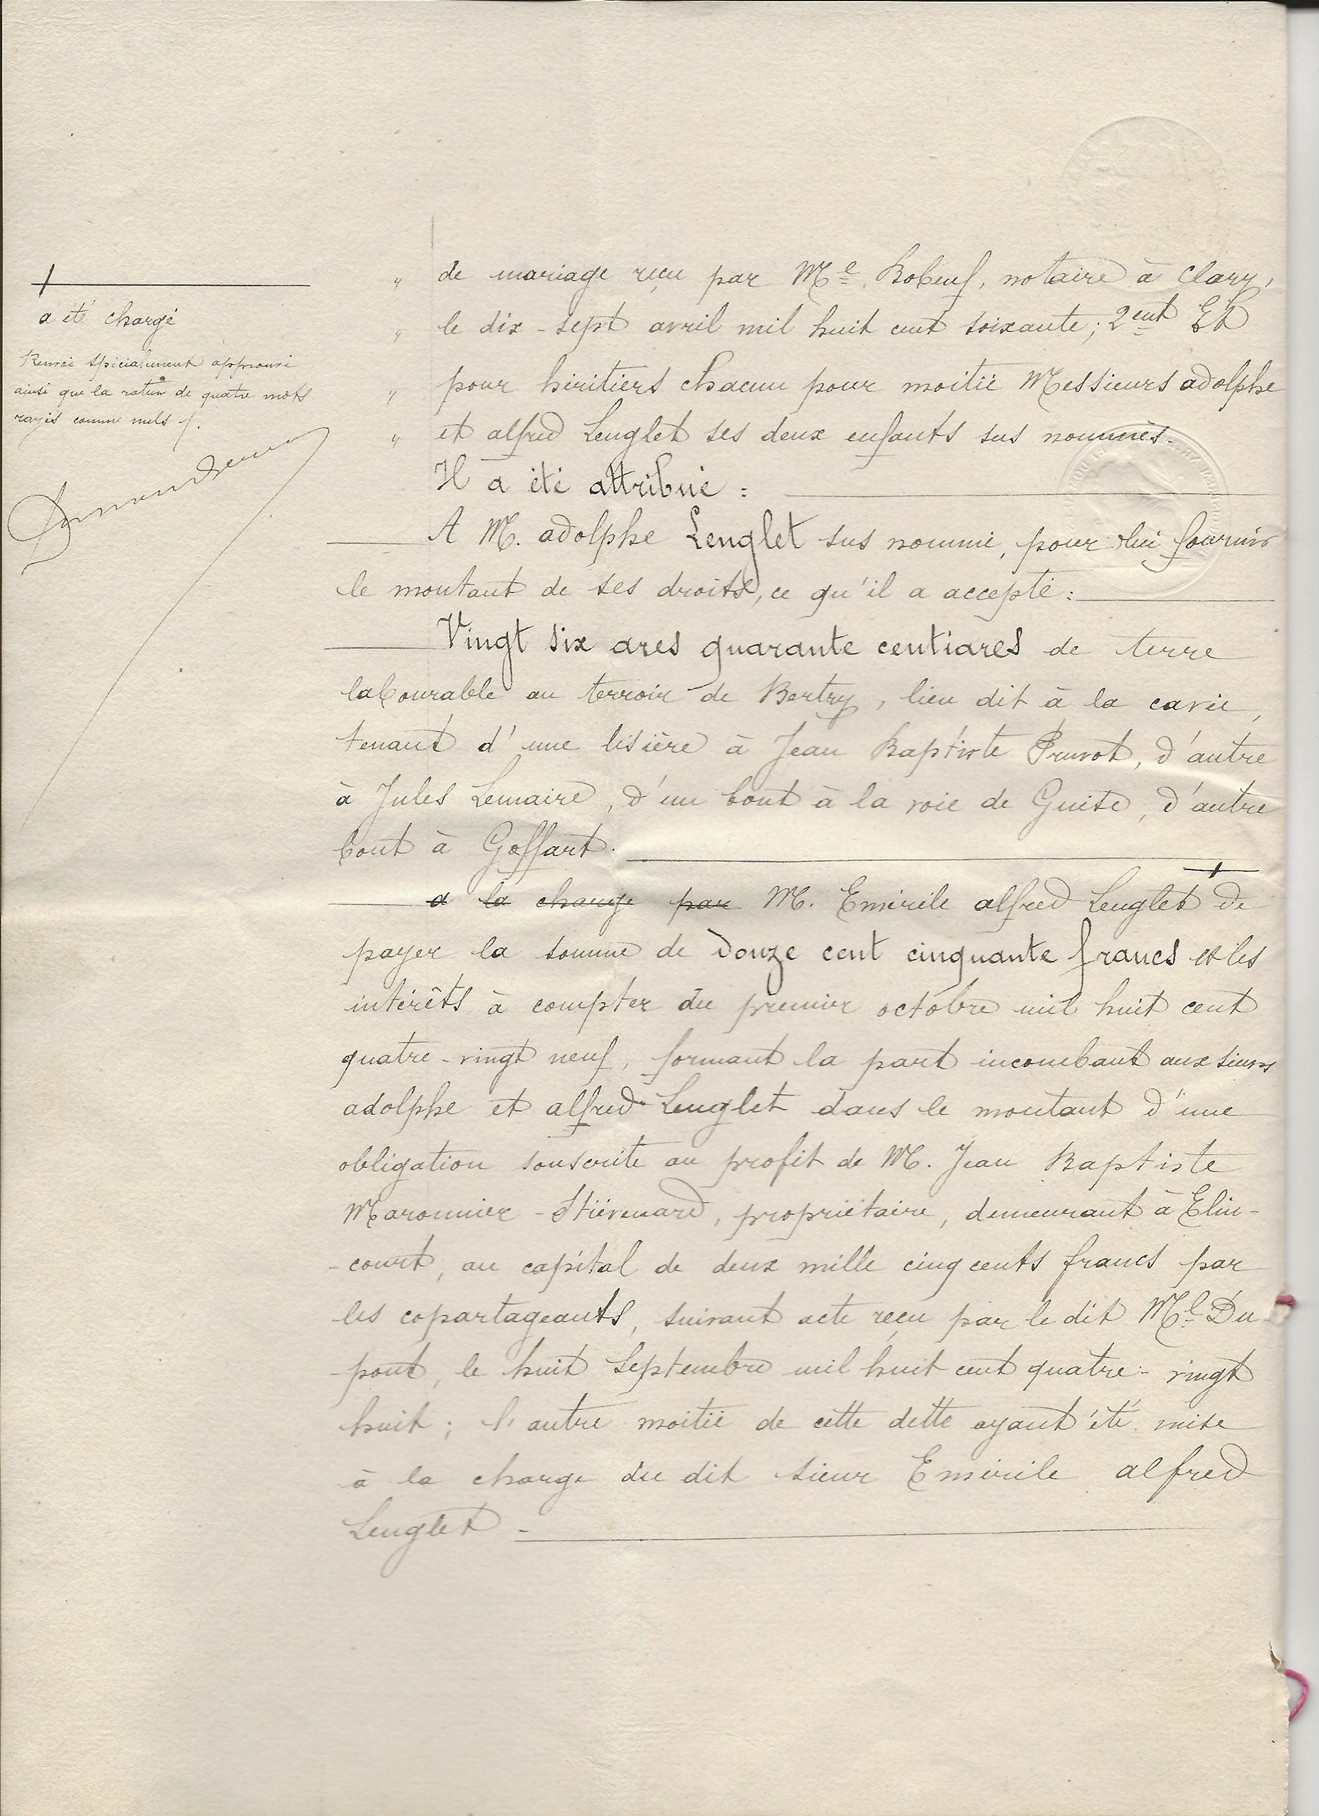 " de mariage reçu par Me Bobeuf, notaire à Clary,
" le dix-sept avril mil huit cent soixante; 2ent Et
" pour héritiers chacun pour moitié Messieurs adolphe
" et alfred Lenglet ses deux enfants sus nommés.
Il a été attribué :
A M. adolphe Lenglet sus nommé, pour lui fournir
le montant de ses droits, ce qu'il a accepté :
Vingt six ares quarante centiares de terre
labourable au terroir de Bertry, lieu dit à la cavée,
tenant d'une lisière à Jean Baptiste Pruvot, d'autre
à Jules Lemaire, d'un bout à la voie de Guise, d'autre
bout à Goffart.
a la charge par M. Emérile alfred Lenglet de
payer la somme de douze cent cinquante francs et les
intérêts à compter du premier octobre mil huit cent
quatre-vingt neuf, formant la part incombant aux sieurs
adolphe et alfred Lenglet dans le montant d'une
obligation souscrite au profit de M. Jean Baptiste
Maronnier-Stiévenard, propriétaire, demeurant à Elin-
-court, au capital de deux mille cinq cents francs par
les copartageants, suivant acte reçu par le dit Me Du
-pont, le huit Septembre mil huit cent quatre-vingt
huit; l'autre moitié de cette dette ayant été mise
à la charge du dit sieur Emérile alfred
Lenglet -
a été chargé
Renvoi spécialement approuvé
ainsi que la rature de quatre mots
rayés comme nuls